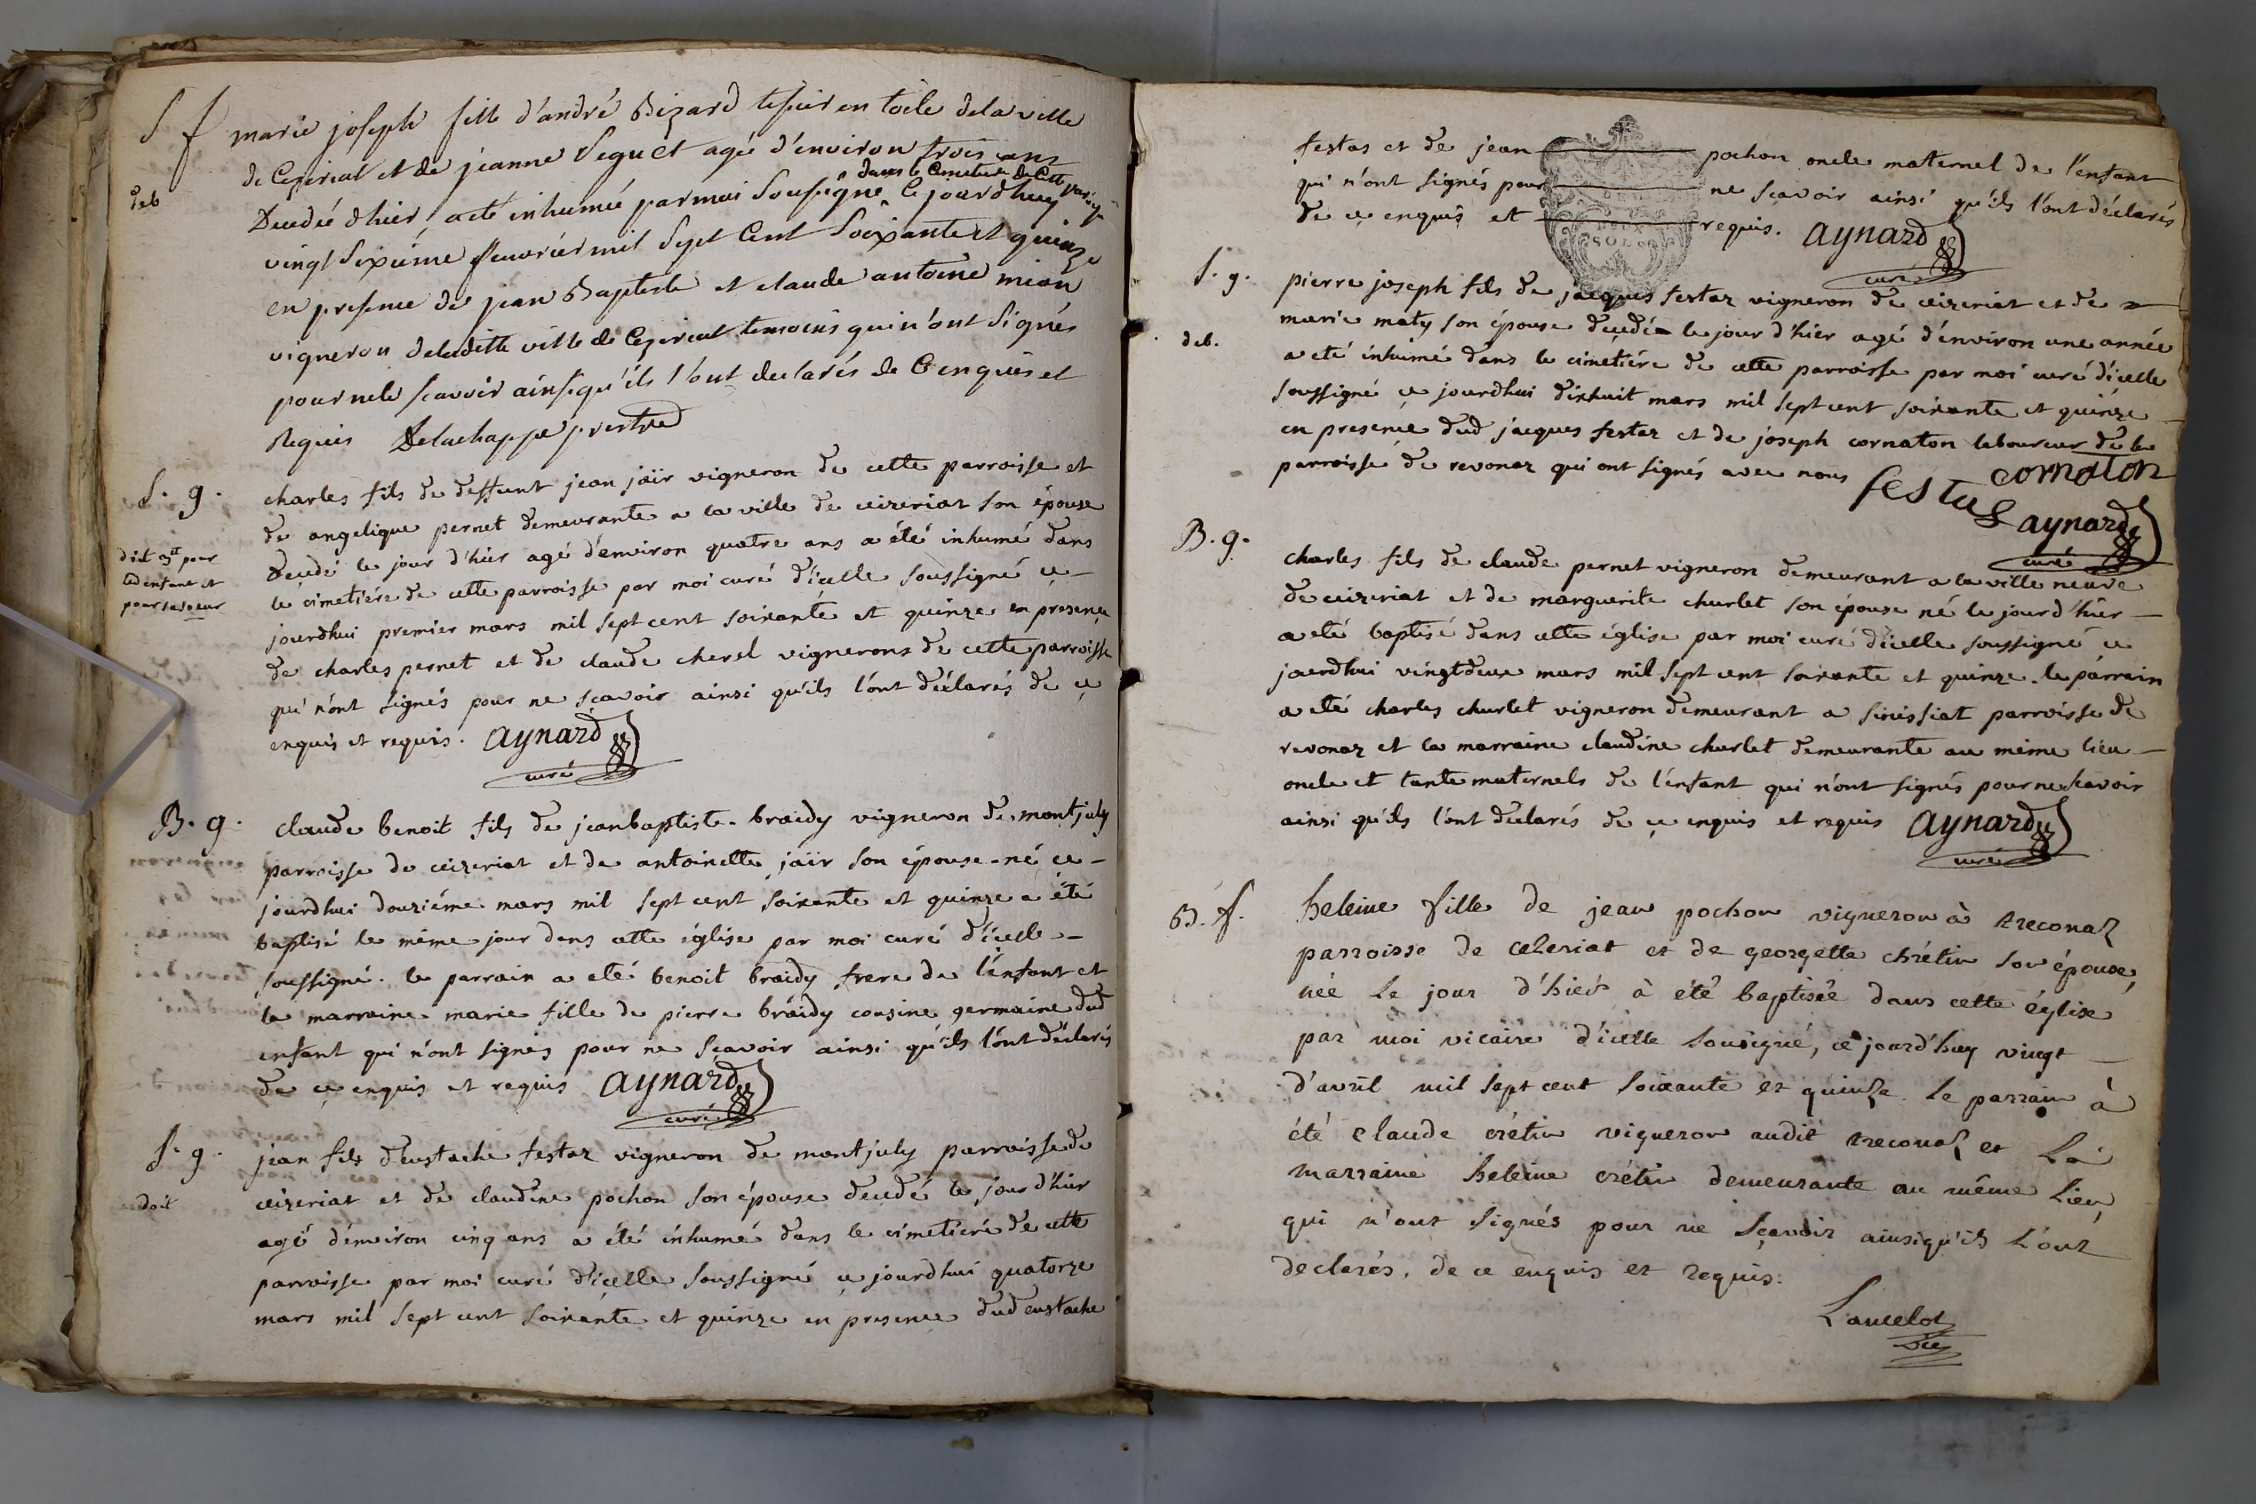 S f marie joseph fille d'andré Bizard tissier en toile dela ville
de Ceziriat et de jeanne Seguet agé d'environ trois ans
dans le Cimetiere de Cette paroisse
deb Decedée d'hier, a eté inhumée par moi Sousigné Ce jourd'huy
vingt Sixiéme fevrier mil Sept Cent Soixante et quinze
en presence de jean Baptiste et claude antoine mion
vigneron deladitte ville de Ceziriat temoins qui n'ont Signés
pour nele scavoir ainsi qu'ils l'ont declarés de Ce enquis et
Requis Delachappe prestre
S. g. charles fils de deffunt jean jaïr vigneron de cette parroisse et
de angelique pernet demeurante a la ville de ceizeriaz son épouse
decedé le jour d'hier agé d'environ quatre ans a été inhumé dans
doit 3tt pour
led enfant et
pour sa soeur
le cimetiére de cette parroisse par moi curé d'icelle soussigné ce
jourdhui premier mars mil sept cent soixante et quinze en presence
de charles pernet et de claude cherel vignerons de cette parroisse
qui n'ont signés pour ne sçavoir ainsi qu'ils l'ont déclarés de ce
enquis et requis. aynard
curé
B. g. claude benoit fils de jeanbaptiste braidy vigneron de montjuly
parroisse de ceizeriat et de antoinette jaïr son épouse né ce
jourdhui douziéme mars mil sept cent soixante et quinze a été
baptisé le même jour dans cette église par moi curé d'icelle
soussigné. le parrain a eté benoit braidy frere de l'enfant et
la marraine marie fille de pierre braidy cousine germaine dud
enfant qui n'ont signés pour ne sçavoir ainsi qu'ils l'ont déclarés
de ce enquis et requis aynard
curé
S. g. jean fils d'eustache festaz vigneron de montjuly parroisse de
ceizeriat et de claudine pochon son épouse decedé le jour d'hier
doit agé d'environ cinq ans a été inhumé dans le cimetiére de cette
parroisse par moi curé d'icelle soussigné ce jourdhui quatorze
mars mil sept cent soixante et quinze en presence dud eustache
festas et de jean pochon oncle maternel de l'enfant
qui n'ont signés pour ne scavoir ainsi qu'ils l'ont déclarés
de ce enquis et requis. aynard
curé
S. g. pierre joseph fils de jacques festaz vigneron de ceizeriat et de
marie maty son épouse decedé le jour d'hier agé d'environ une année
deb. a eté inhumé dans le cimetiére de cette parroisse par moi curé d'icelle
soussigné ce jourdhui dixhuit mars mil sept cent soixante et quinze
en presence dud jacques festaz et de joseph cornaton laboureur de la
parroisse de revonaz qui ont signés avec nous festas cornaton
aynard
curé
B. g. charles fils de claude pernet vigneron demeurant a la ville neuve
de ceizeriat et de marguerite churlet son épouse né le jourd'hier
a eté baptisé dans cette église par moi curé d'icelle soussigné ce
jourdhui vingtdeux mars mil sept cent soixante et quinze. le parrain
a eté charles churlet vigneron demeurant a sinissiat parroisse de
revonaz et la marraine claudine churlet demeurante au même lieu
oncle et tante maternels de l'enfant qui n'ont signés pour ne scavoir
ainsi qu'ils l'ont déclarés de ce enquis et requis aynard
curé
B. f. heleine fille de jean pochon vigneron à treconaz
parroisse de cezeriat et de georgette chrétin son épouse,
née le jour d'hiér à été baptisée dans cette église
par moi vicaire d'icelle sousigné, ce jourd'huy vingt
d'avril mil sept cent soixante et quinze. le parrain à
été claude crétin vigneron audit treconaz et La
marraine heleine crétin demeurante au même lieu,
qui n'ont signés pour ne sçavoir ainsiqu'ils L'ont
declarés, de ce enquis et requis.
Lancelot
vic